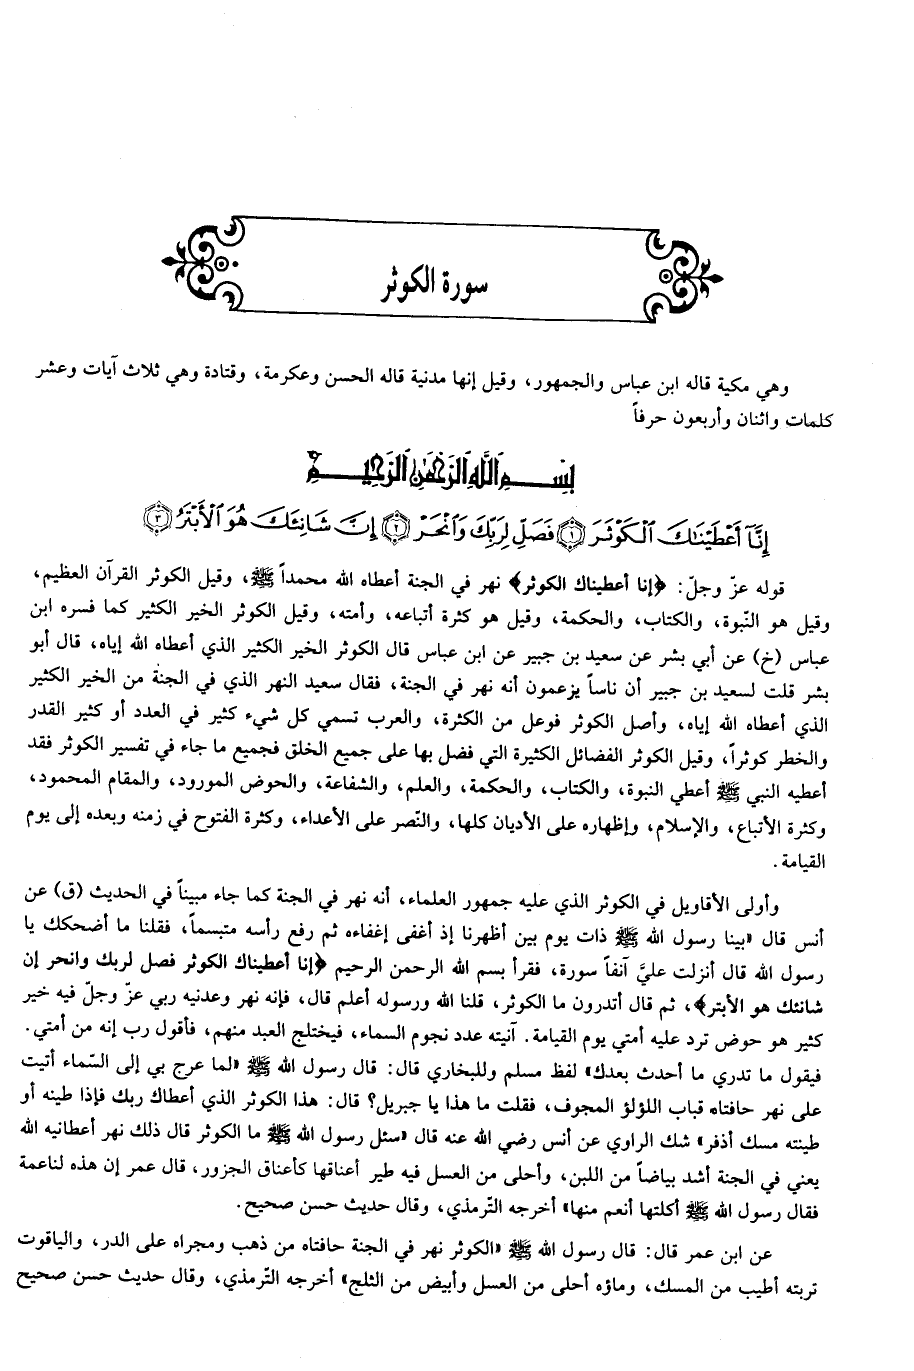 سورة الكوثر
وهي مكية قاله ابن عباس والجمهور، وقيل إنها مدنية قاله الحسن وعكرمة، وقتادة وهي ثلاث آيات وعشر
كلمات واثنان وأربعون حرفاً
بِسْمِ اللَّهِ الرَّحْمَٰنِ الرَّحِيمِ
إِنَّآ أَعْطَيْنَاكَ ٱلْكَوْثَرَ ﴿١﴾ فَصَلِّ لِرَبِّكَ وَٱنْحَرْ ﴿٢﴾ إِنَّ شَانِئَكَ هُوَ ٱلْأَبْتَرُ ﴿٣﴾
قوله عزّ وجلّ: ﴿إنا أعطيناك الكوثر﴾ نهر في الجنة أعطاه الله محمداً ﷺ، وقيل الكوثر القرآن العظيم،
وقيل هو النّبوة، والكتاب، والحكمة، وقيل هو كثرة أتباعه، وأمته، وقيل الكوثر الخير الكثير كما فسره ابن
عباس (خ) عن أبي بشر عن سعيد بن جبير عن ابن عباس قال الكوثر الخير الكثير الذي أعطاه الله إياه، قال أبو
بشر قلت لسعيد بن جبير أن ناساً يزعمون أنه نهر في الجنة، فقال سعيد النهر الذي في الجنة من الخير الكثير
الذي أعطاه الله إياه، وأصل الكوثر فوعل من الكثرة، والعرب تسمي كل شيء كثير في العدد أو كثير القدر
والخطر كوثراً، وقيل الكوثر الفضائل الكثيرة التي فضل بها على جميع الخلق فجميع ما جاء في تفسير الكوثر فقد
أعطيه النبي ﷺ أعطي النبوة، والكتاب، والحكمة، والعلم، والشفاعة، والحوض المورود، والمقام المحمود،
وكثرة الأتباع، والإسلام، وإظهاره على الأديان كلها، والنّصر على الأعداء، وكثرة الفتوح في زمنه وبعده إلى يوم
القيامة.
وأولى الأقاويل في الكوثر الذي عليه جمهور العلماء، أنه نهر في الجنة كما جاء مبيناً في الحديث (ق) عن
أنس قال «بينا رسول الله ﷺ ذات يوم بين أظهرنا إذ أغفى إغفاءه ثم رفع رأسه متبسماً، فقلنا ما أضحكك يا
رسول الله قال أنزلت عليَّ آنفاً سورة، فقرأ بسم الله الرحمن الرحيم ﴿إنا أعطيناك الكوثر فصل لربك وانحر إن
شانئك هو الأبتر﴾، ثم قال أتدرون ما الكوثر، قلنا الله ورسوله أعلم قال، فإنه نهر وعدنيه ربي عزّ وجلّ فيه خير
كثير هو حوض ترد عليه أمتي يوم القيامة. آنيته عدد نجوم السماء، فيختلج العبد منهم، فأقول رب إنه من أمتي.
فيقول ما تدري ما أحدث بعدك» لفظ مسلم وللبخاري قال: قال رسول الله ﷺ «لما عرج بي إلى السّماء أتيت
على نهر حافتاه قباب اللؤلؤ المجوف، فقلت ما هذا يا جبريل؟ قال: هذا الكوثر الذي أعطاك ربك فإذا طينه أو
طينته مسك أذفر» شك الراوي عن أنس رضي الله عنه قال «سئل رسول الله ﷺ ما الكوثر قال ذلك نهر أعطانيه الله
يعني في الجنة أشد بياضاً من اللبن، وأحلى من العسل فيه طير أعناقها كأعناق الجزور، قال عمر إن هذه لناعمة
فقال رسول الله ﷺ أكلتها أنعم منها» أخرجه التّرمذي، وقال حديث حسن صحيح.
عن ابن عمر قال: قال رسول الله ﷺ «الكوثر نهر في الجنة حافتاه من ذهب ومجراه على الدر، والياقوت
تربته أطيب من المسك، وماؤه أحلى من العسل وأبيض من الثلج» أخرجه التّرمذي، وقال حديث حسن صحيح